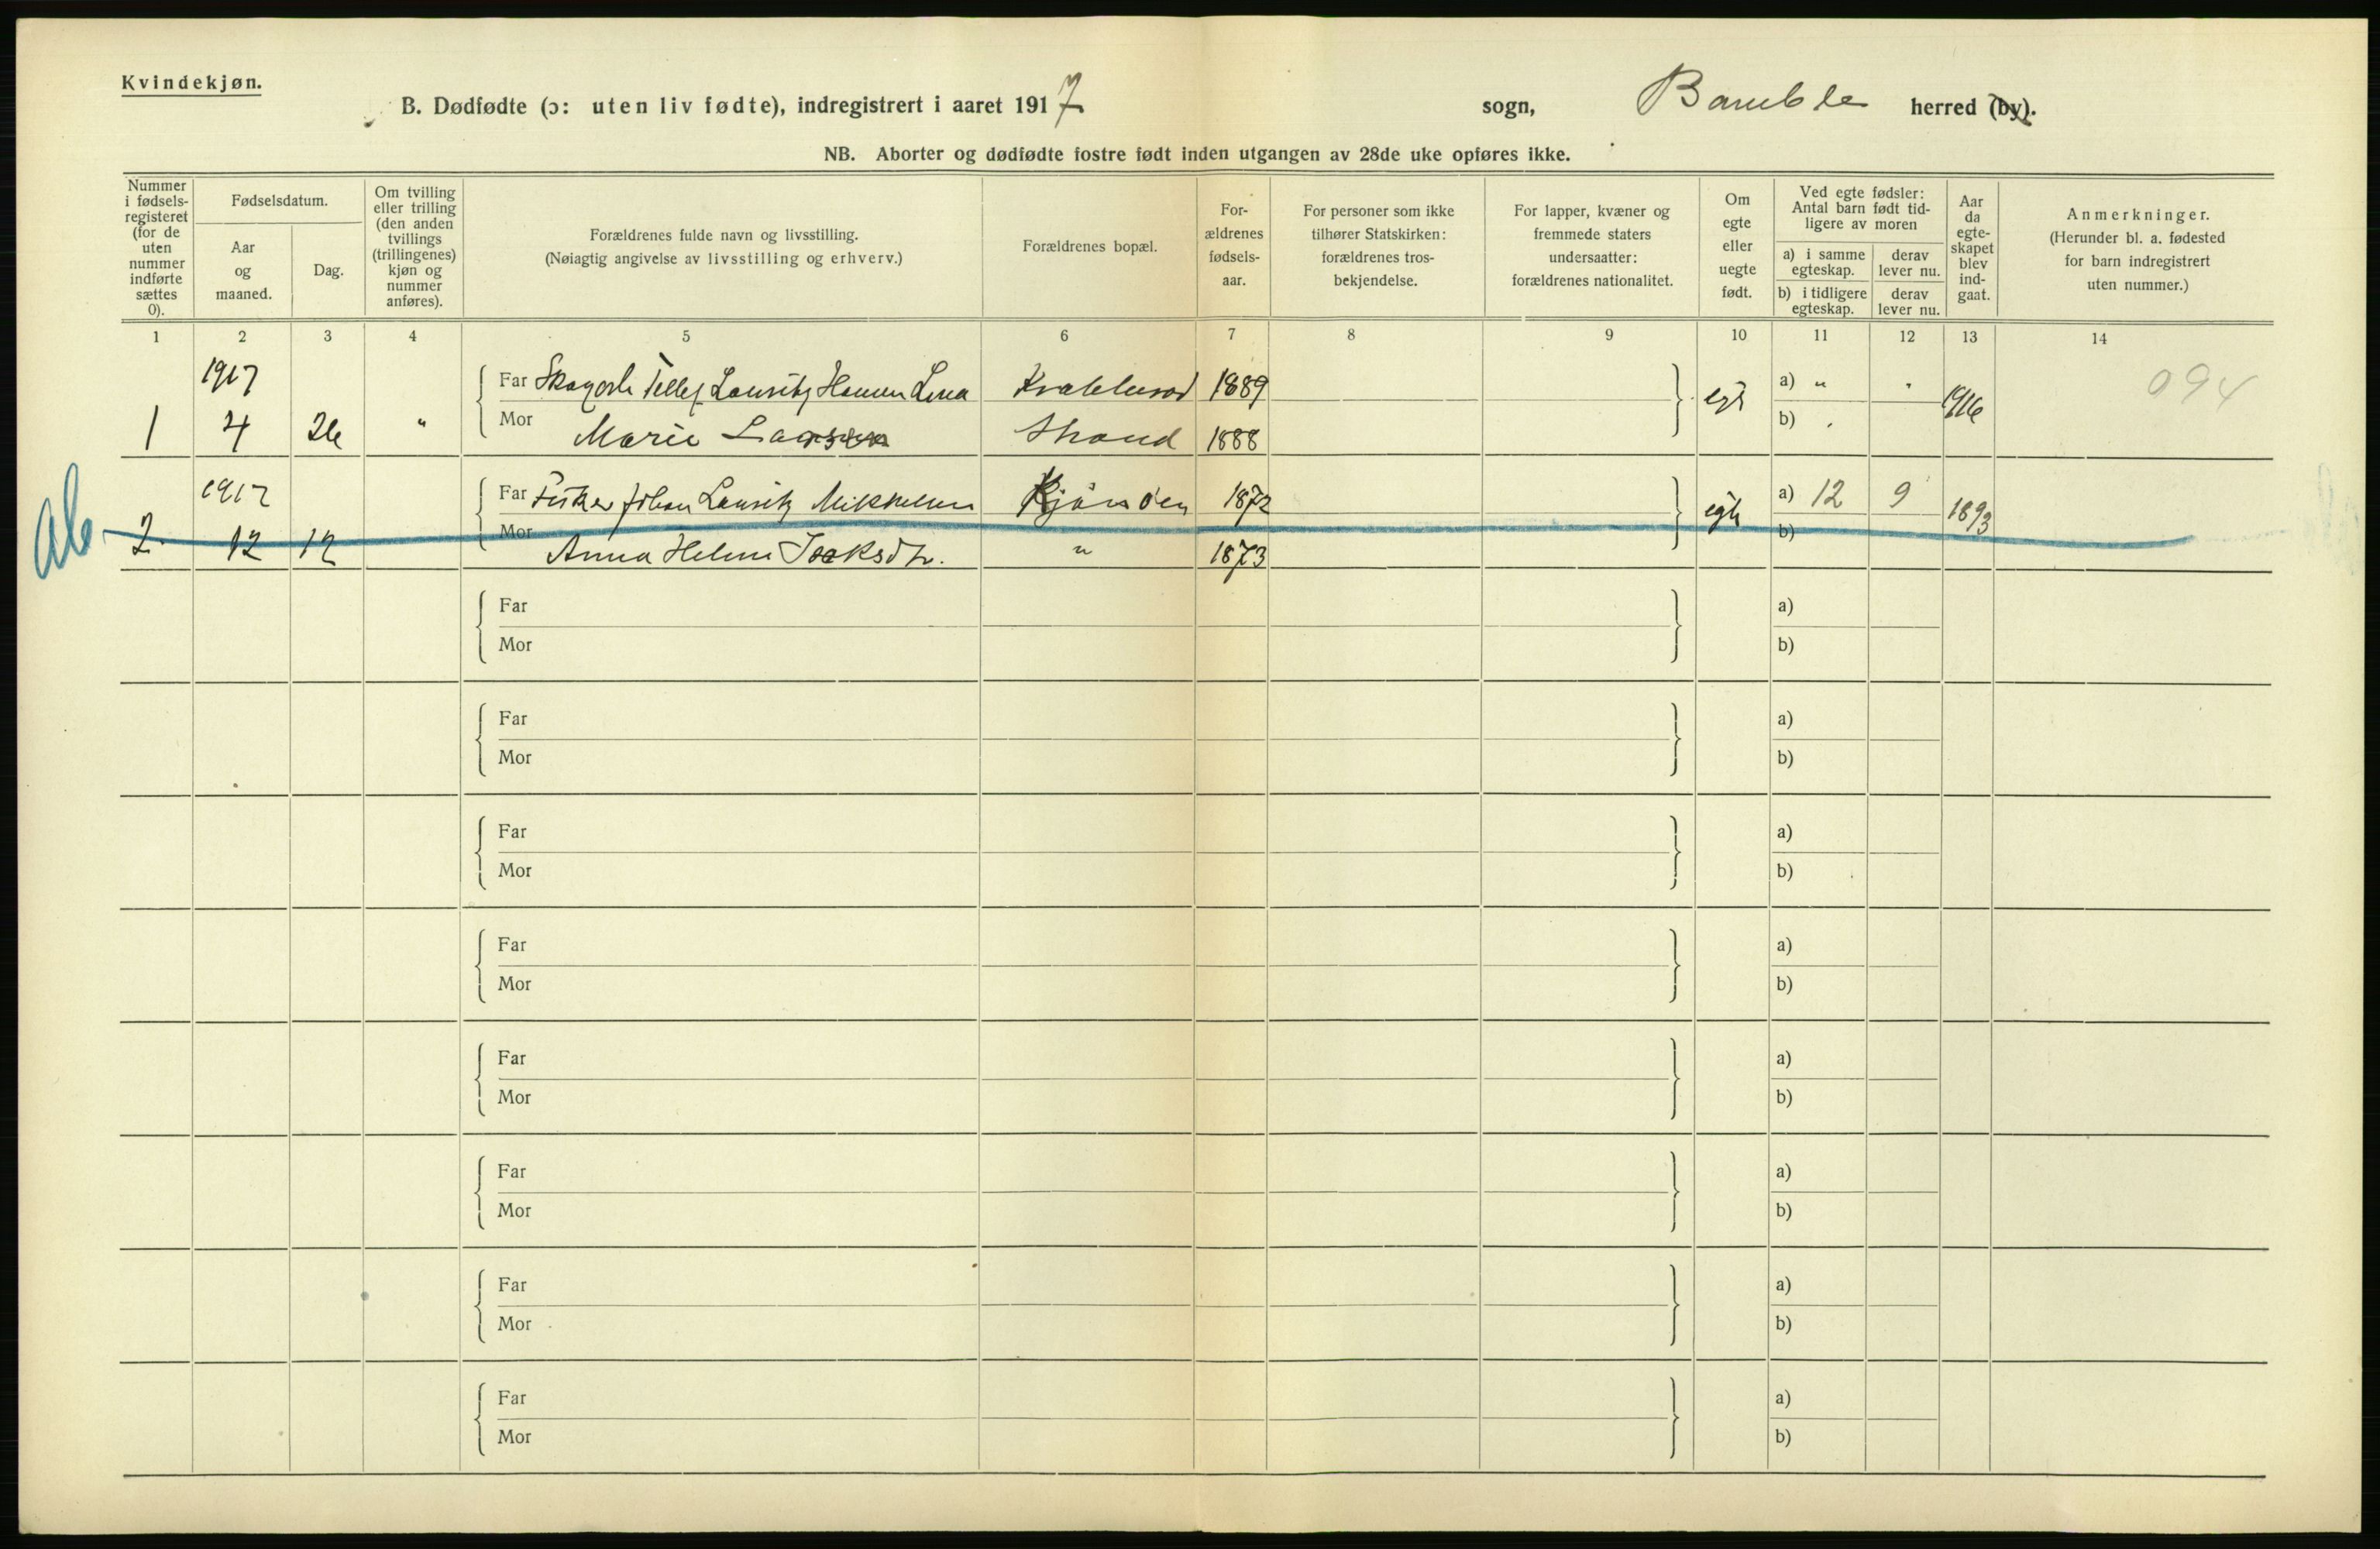 Kvindekjøn.
B. Dødfødte (ɔ: uten liv fødte), indregistrert i aaret 1917 sogn, Bamble herred (by).
NB. Aborter og dødfødte fostre født inden utgangen av 28de uke opføres ikke.
Nummer i fødsels-registeret (for de uten nummer indførte sættes 0).
Fødselsdatum.
Aar og maaned.
Dag.
Om tvilling eller trilling (den anden tvillings (trillingenes) kjøn og nummer anføres).
Forældrenes fulde navn og livsstilling.
(Nøiagtig angivelse av livsstilling og erhverv.)
Forældrenes bopæl.
For-ældrenes fødsels-aar.
For personer som ikke tilhører Statskirken: forældrenes tros-bekjendelse.
For lapper, kvæner og fremmede staters undersaatter: forældrenes nationalitet.
Om egte eller uegte født.
Ved egte fødsler: Antal barn født tid-ligere av moren
a) i samme egteskap.
derav lever nu.
b) i tidligere egteskap.
derav lever nu.
Aar da egte-skapet blev ind-gaat.
Anmerkninger.
(Herunder bl. a. fødested for barn indregistrert uten nummer.)
1 2 3 4 5 6 7 8 9 10 11 12 13 14
1917
Far Lauritz Hansen 1889 a) "
1 4 26 " Mor Marie Larsen Strand 1888 egte b) 1916
094
1917
Far Fisker Johan Lauritz Mikkelsen 1872 a) 12 9
2 12 12 Mor Anna Helene " 1873 egte b) 1893
Far a)
Mor b)
Far a)
Mor b)
Far a)
Mor b)
Far a)
Mor b)
Far a)
Mor b)
Far a)
Mor b)
Far a)
Mor b)
Far a)
Mor b)